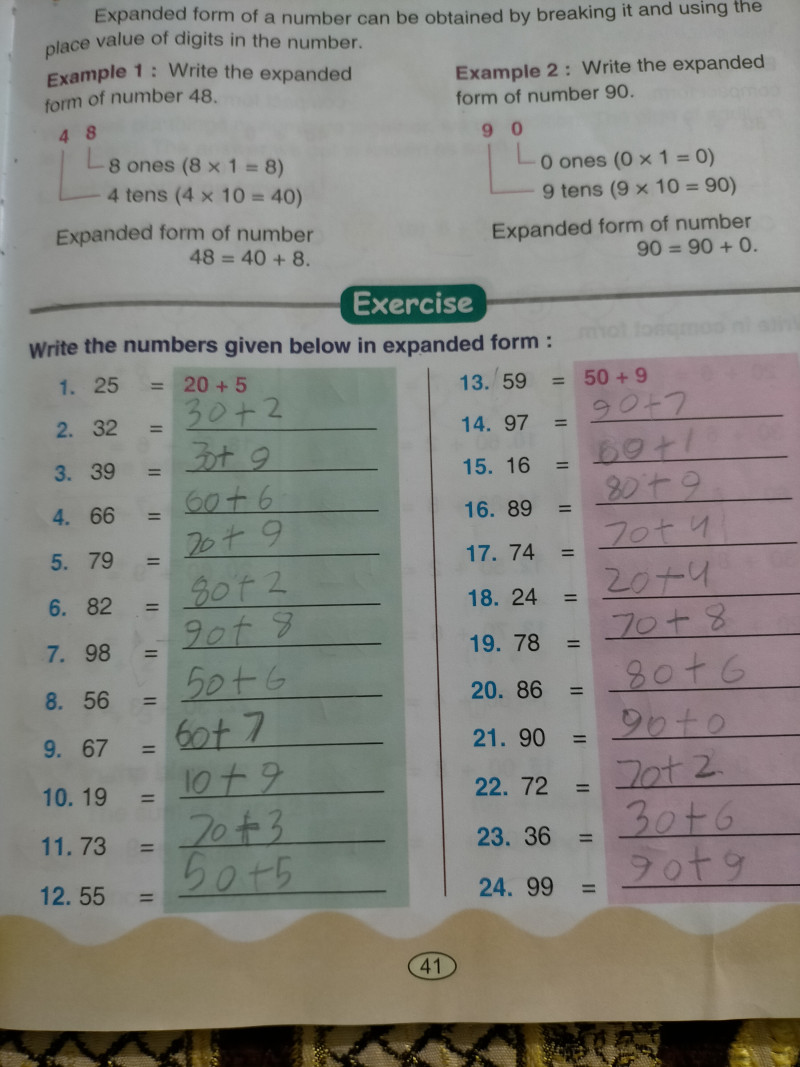 Expanded form of a number can be obtained by breaking it and using the
place value of digits in the number.
Example 1 : Write the expanded
form of number 48.
4 8
8 ones (8 × 1 = 8)
4 tens (4 × 10 = 40)
Expanded form of number
48 = 40 + 8.
Example 2 : Write the expanded
form of number 90.
9 0
0 ones (0 × 1 = 0)
9 tens (9 × 10 = 90)
Expanded form of number
90 = 90 + 0.
Exercise
Write the numbers given below in expanded form :
1. 25 = 20 + 5
2. 32 = 30+2
3. 39 = 30+9
4. 66 = 60+6
5. 79 = 70+9
6. 82 = 80+2
7. 98 = 90+8
8. 56 = 50+6
9. 67 = 60+7
10. 19 = 10+9
11. 73 = 70+3
12. 55 = 50+5
13. 59 = 50 + 9
14. 97 = 90+7
15. 16 = 60+1
16. 89 = 80+9
17. 74 = 70+4
18. 24 = 20+4
19. 78 = 70+8
20. 86 = 80+6
21. 90 = 90+0
22. 72 = 70+2
23. 36 = 30+6
24. 99 = 90+9
41